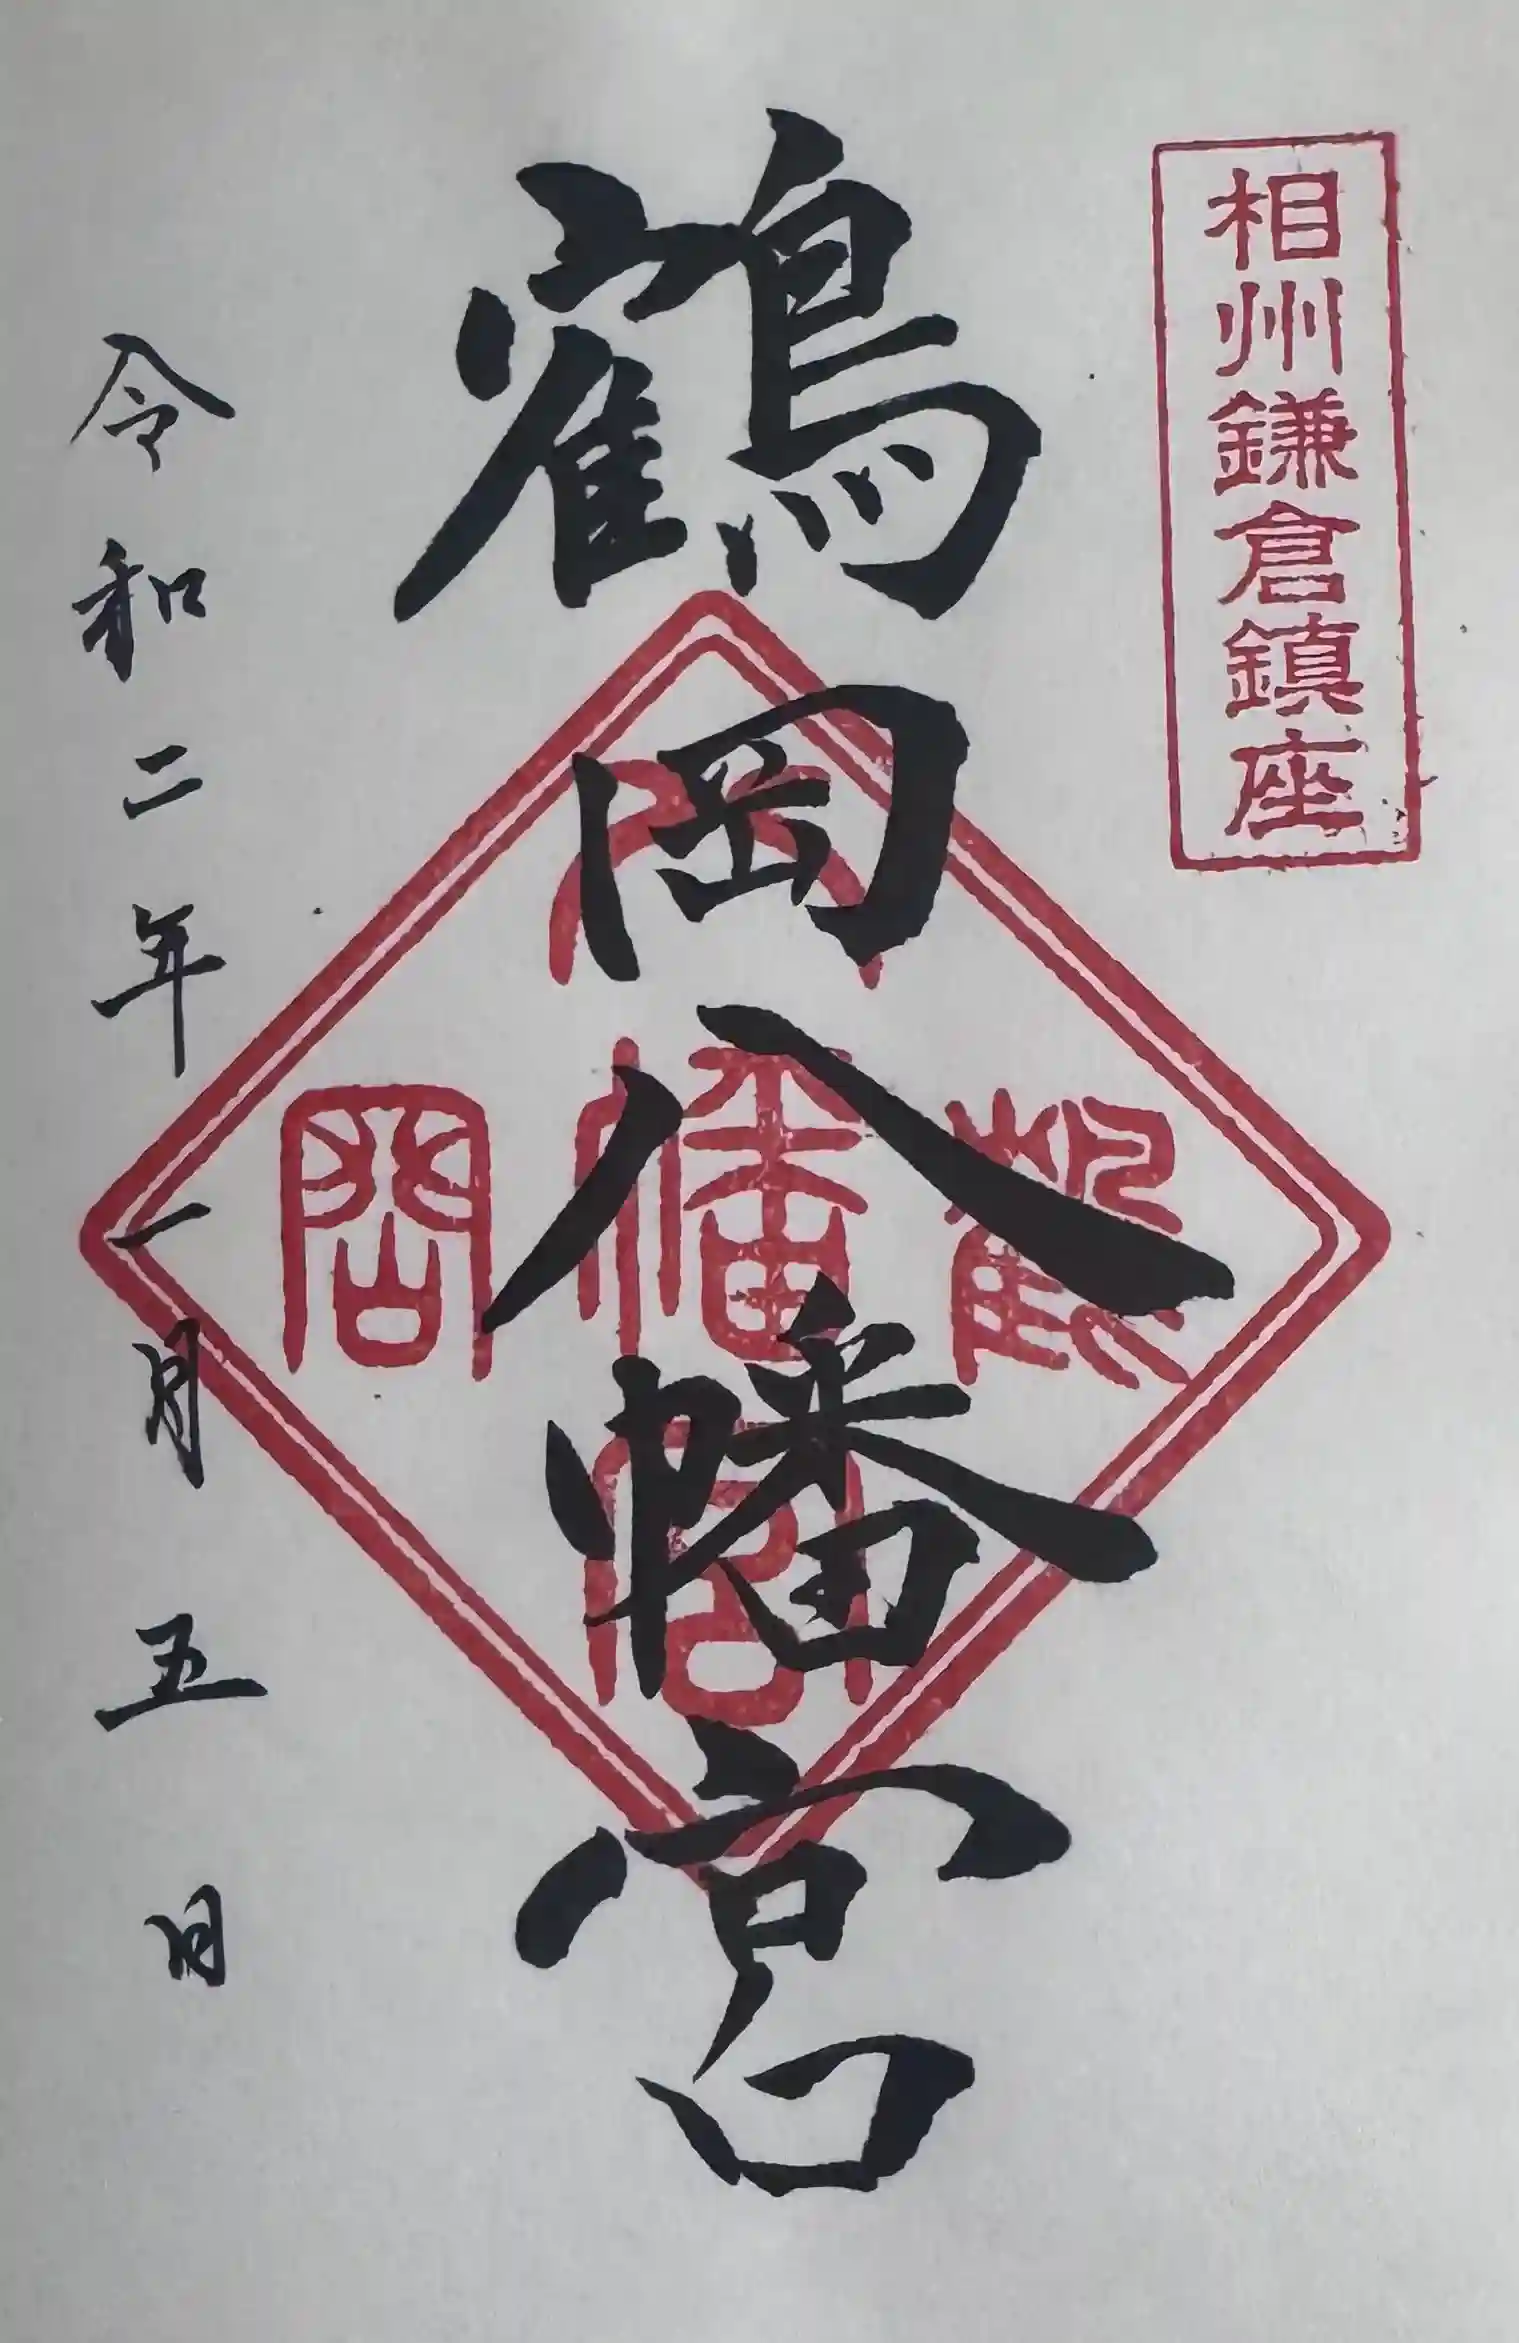 相州鎌倉鎮座
鶴岡八幡宮
鶴岡八幡宮
令和二年一月五日